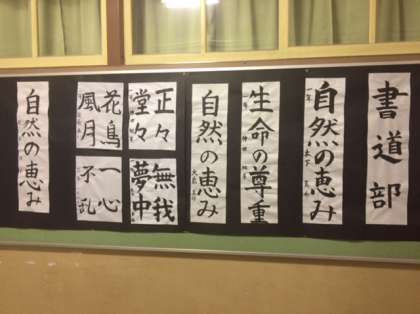 書道部
自然の恵み
一年
生命の尊重
自然の恵み
正々
堂々
無我
夢中
花鳥
風月
一心
不乱
自然の恵み